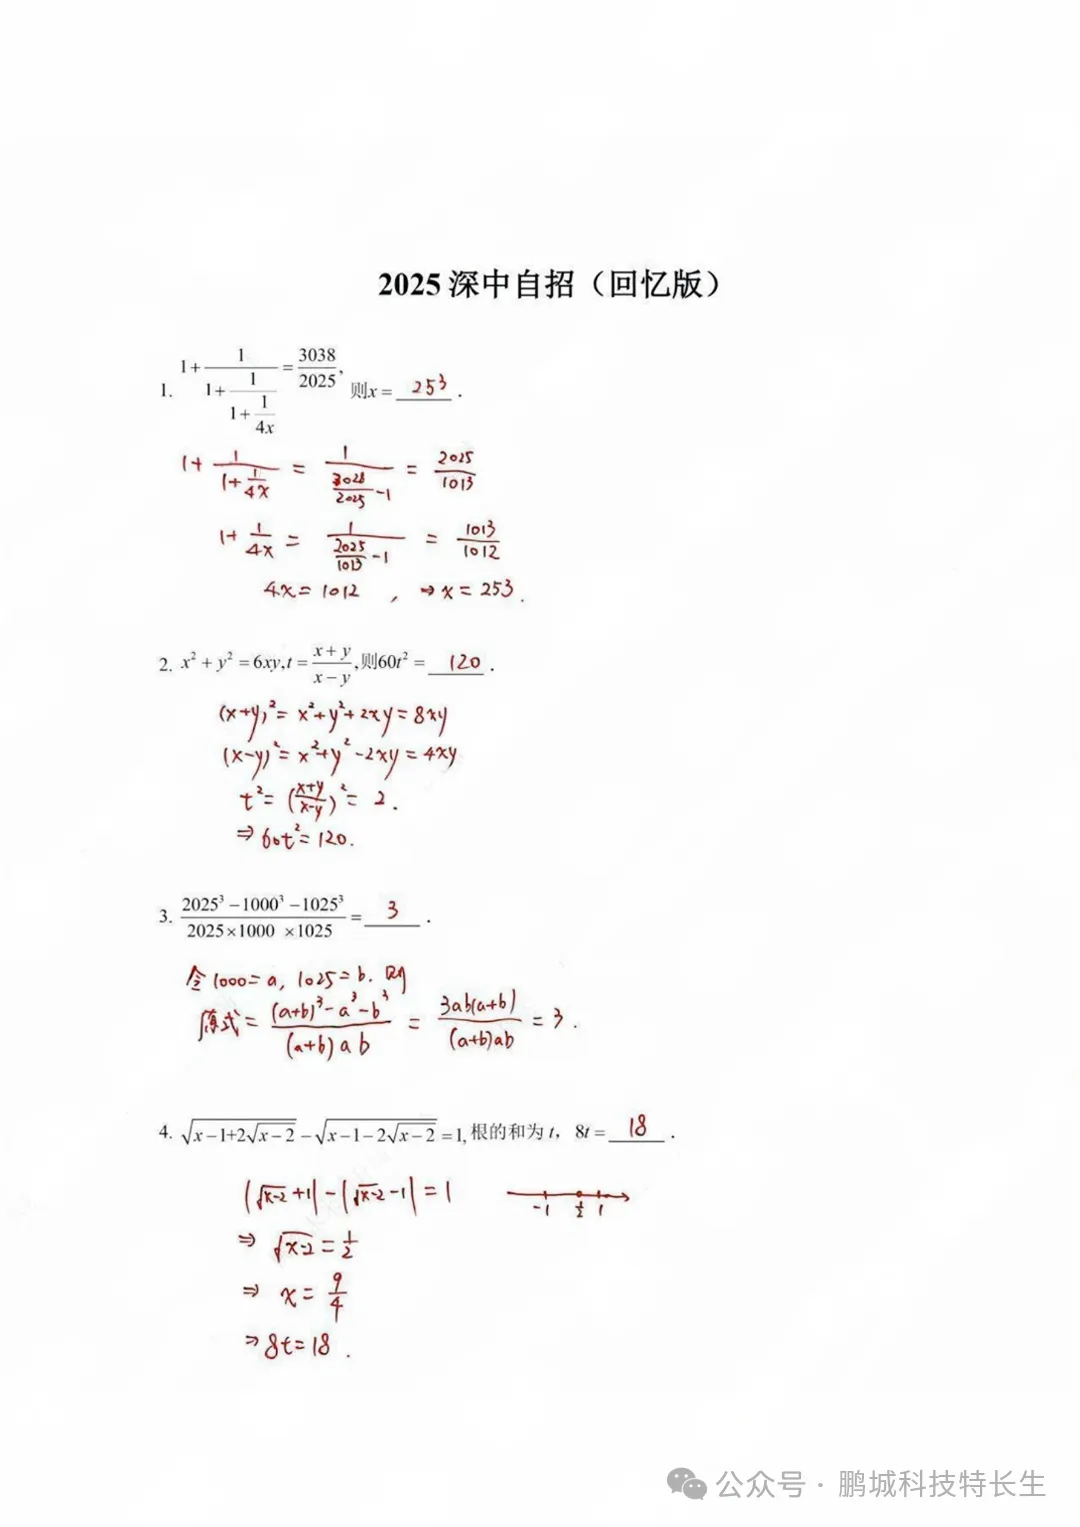 2025 深中自招（回忆版）
1. 1+1/(1+1/(1+1/(4x)))=3038/2025, 则x= 253 .
1+1/(1+1/(4x)) = 1/(3028/2025-1) = 2025/1013
1+1/(4x) = 1/(2025/1013-1) = 1013/1012
4x=1012 , ⇒x=253.
2. x²+y²=6xy,t=(x+y)/(x-y),则60t²= 120 .
(x+y)²=x²+y²+2xy=8xy
(x-y)²=x²+y²-2xy=4xy
t²=((x+y)/(x-y))²=2.
⇒60t²=120.
3. (2025³-1000³-1025³)/(2025×1000 ×1025)= 3 .
令1000=a, 1025=b. 则
原式=((a+b)³-a³-b³)/((a+b)ab) = 3ab(a+b)/((a+b)ab) =3.
4. √(x-1+2√(x-2))-√(x-1-2√(x-2))=1,根的和为 t, 8t= 18 .
|√(x-2)+1|-|√(x-2)-1|=1
-1 1/2 1
⇒ √(x-2)=1/2
⇒ x=9/4
⇒8t=18.
公众号·鹏城科技特长生